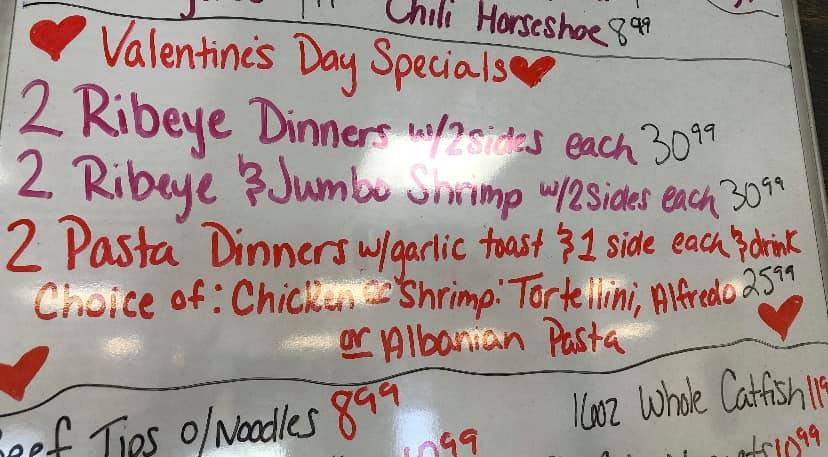 Chili Horseshoe 8 99
Valentine's Day Specials
2 Ribeye Dinners w/2sides each 30 99
2 Ribeye & Jumbo Shrimp w/2sides each 30 99
2 Pasta Dinners w/garlic toast & 1 side each & drink
Choice of: Chicken or Shrimp: Tortellini, Alfredo 25 99
or Albanian Pasta
Tips o/Noodles 8 99
16oz Whole Catfish
10 99